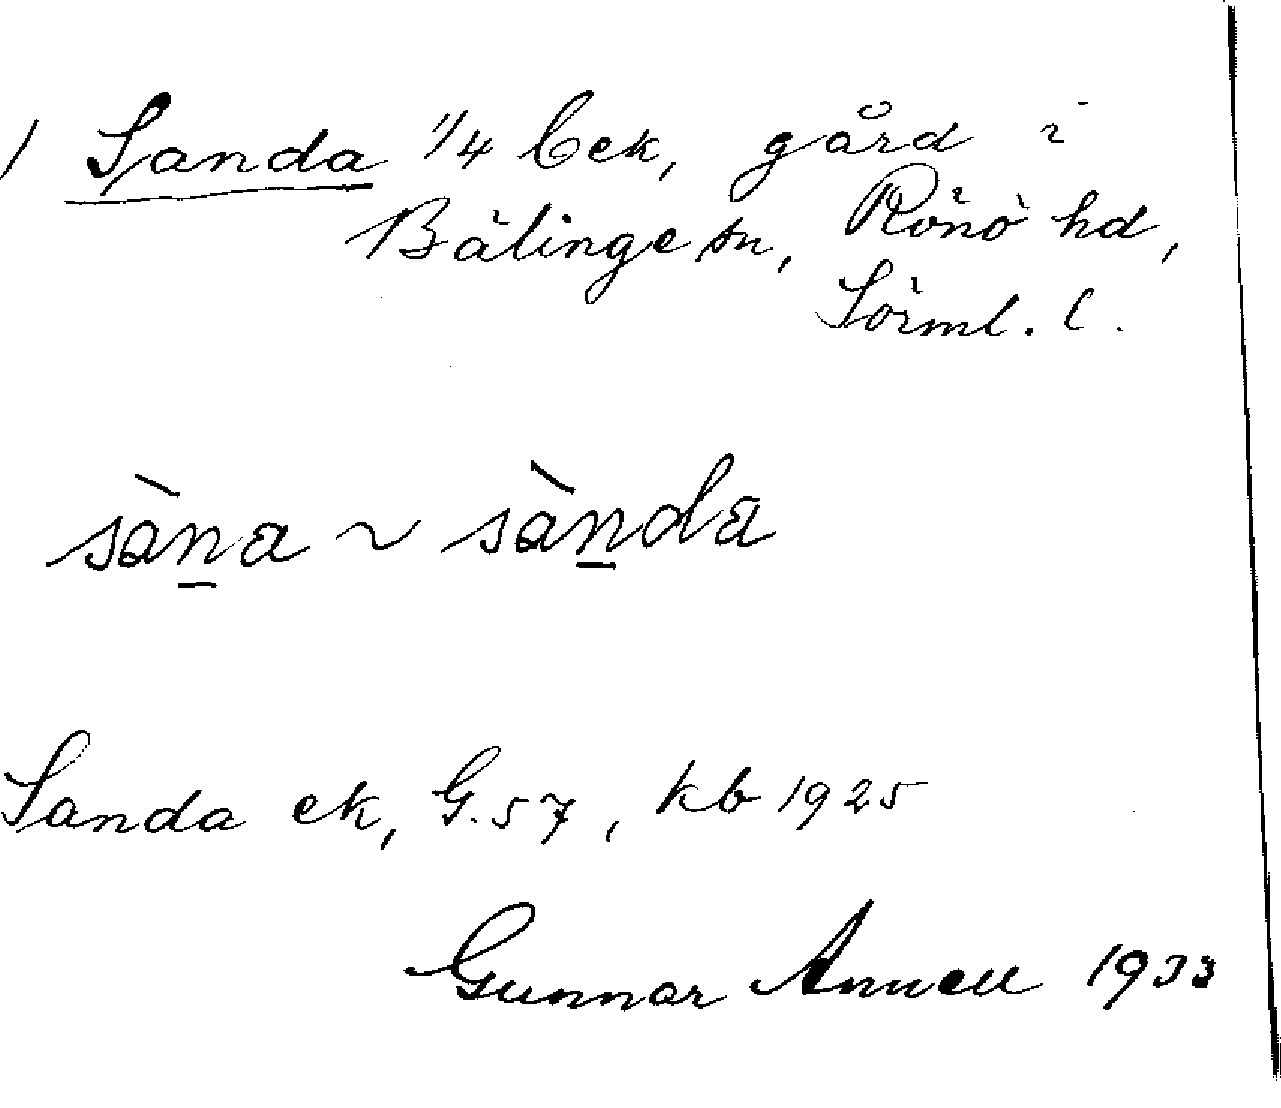 / Sanda 1/4 bek, gård i
Bälinge sn, Rönö hd,
Sörml. l.
sàn̲a ~ sàn̲da
Sanda ek, G. 57, kb 1925
Gunnar Annell 1933